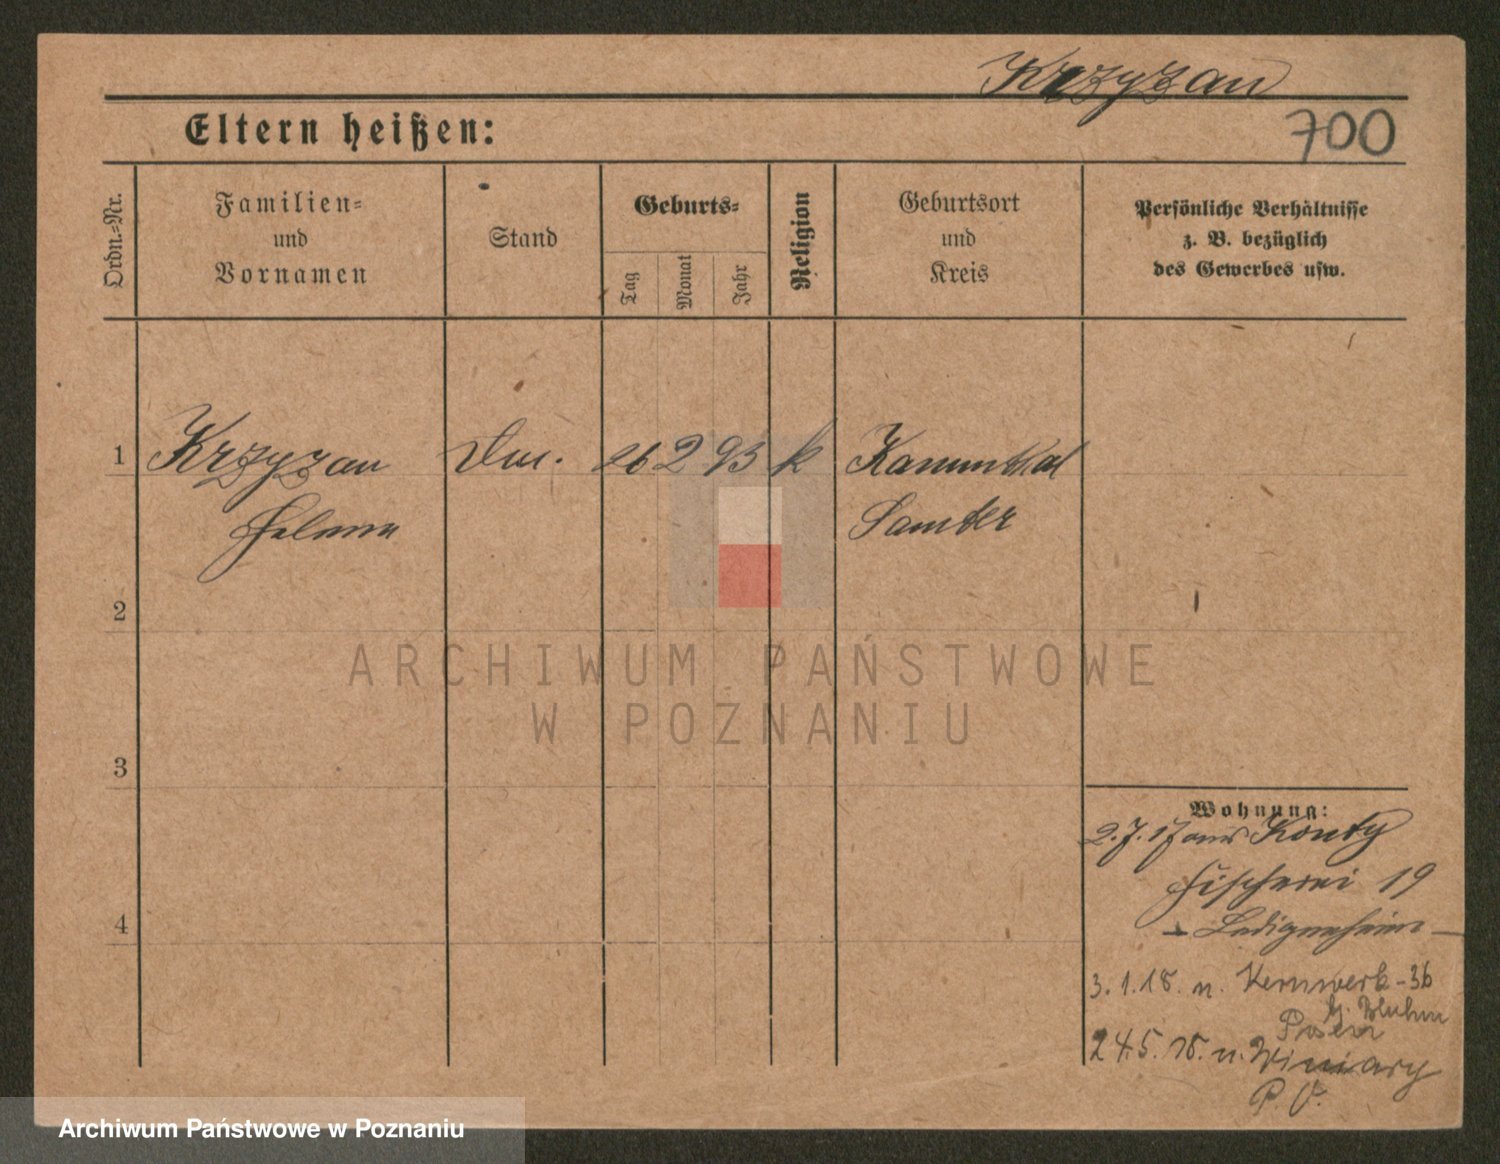 Krzyzan
Eltern heißen:
700
Ordn.-Nr.
Familien-
und
Vornamen
Stand
Geburts-
Tag
Monat
Jahr
Religion
Geburtsort
und
Kreis
Persönliche Verhältnisse
z. B. bezüglich
des Gewerbes usw.
1
Krzyzan
Helena
26 2 93
k
Samter
2
ARCHIWUM PAŃSTWOWE
W POZNANIU
3
Wohnung:
2.7.17 aus
Fischerei 19
- Ledigenheim -
4
3.1.18. n. Kernwerk - 3b
Posen
24.5.18. n. Winiary
Archiwum Państwowe w Poznaniu